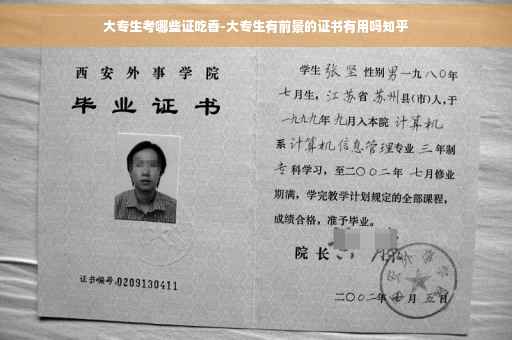 大专生考哪些证吃香-大专生有前景的证书有用吗知乎
西安外事学院
毕业证书
证书编号:0209130411
学生 张坚 性别 男 一九八〇年
七月生, 江苏省 苏州县(市)人,于
一九九九年九月入本院 计算机
系 计算机信息管理专业 三 年制
专科学习, 至二〇〇二年 七月修业
期满, 学完教学计划规定的全部课程,
成绩合格, 准予毕业。
院长
二〇〇二年 月 五日